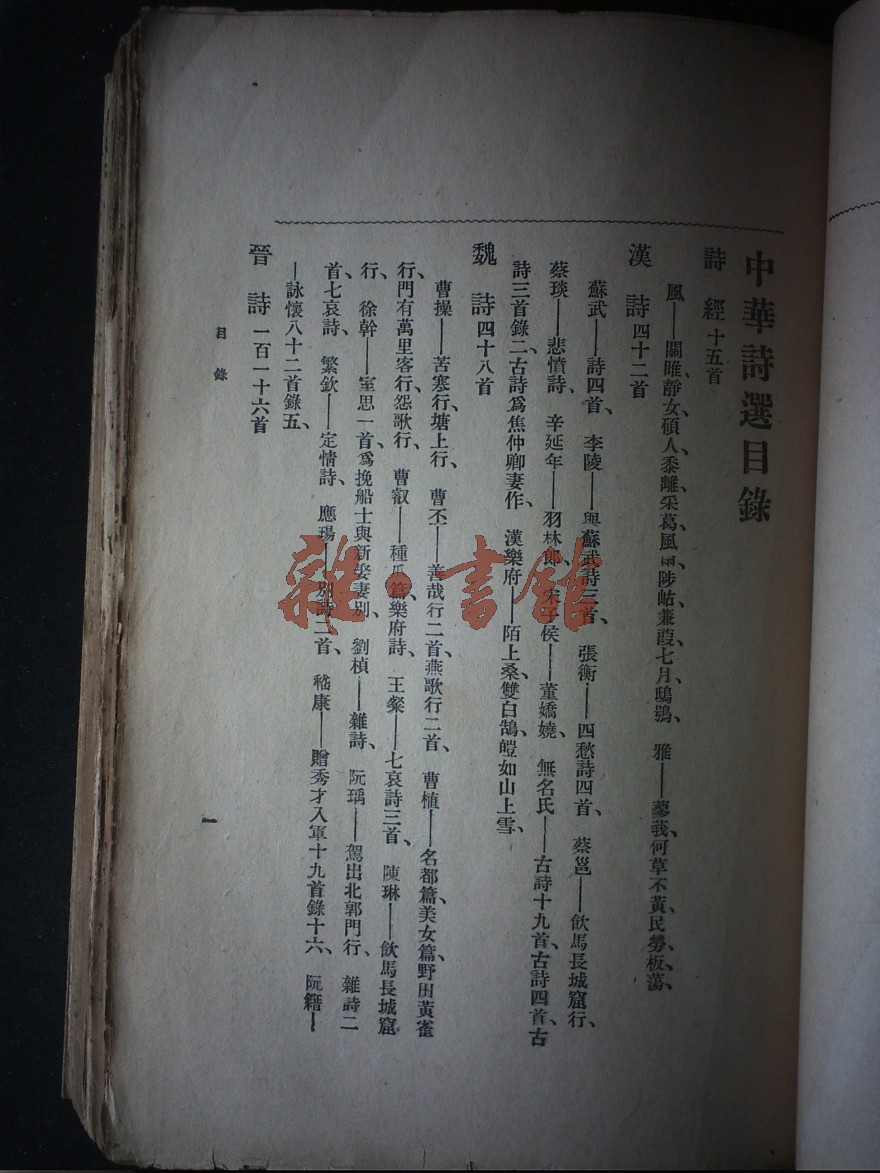 中華詩選目錄
詩經十五首
風——關雎、靜女、碩人、黍離、采葛、風雨、陟岵、蒹葭、七月、鴟鴞、 雅——蓼莪、何草不黃、民勞、板、蕩、
漢詩四十二首
蘇武——詩四首、 李陵——與蘇武詩三首、 張衡——四愁詩四首、 蔡邕——飲馬長城窟行、
蔡琰——悲憤詩、 辛延年——羽林郎、 宋子侯——董嬌嬈、 無名氏——古詩十九首、古詩四首、古
詩三首錄二、古詩爲焦仲卿妻作、 漢樂府——陌上桑、雙白鵠、皚如山上雪、
魏詩四十八首
曹操——苦寒行、塘上行、 曹丕——善哉行二首、燕歌行二首、 曹植——名都篇、美女篇、野田黃雀
行、門有萬里客行、怨歌行、 曹叡——種瓜篇、樂府詩、 王粲——七哀詩三首、 陳琳——飲馬長城窟
行、 徐幹——室思一首、爲挽船士與新娶妻別、 劉楨——雜詩、 阮瑀——駕出北郭門行、 雜詩二
首、七哀詩、 繁欽——定情詩、 應瑒——別詩二首、 嵇康——贈秀才入軍十九首錄十六、 阮籍—
—詠懷八十二首錄五、
晉詩一百一十六首
目錄
一
雜·書館